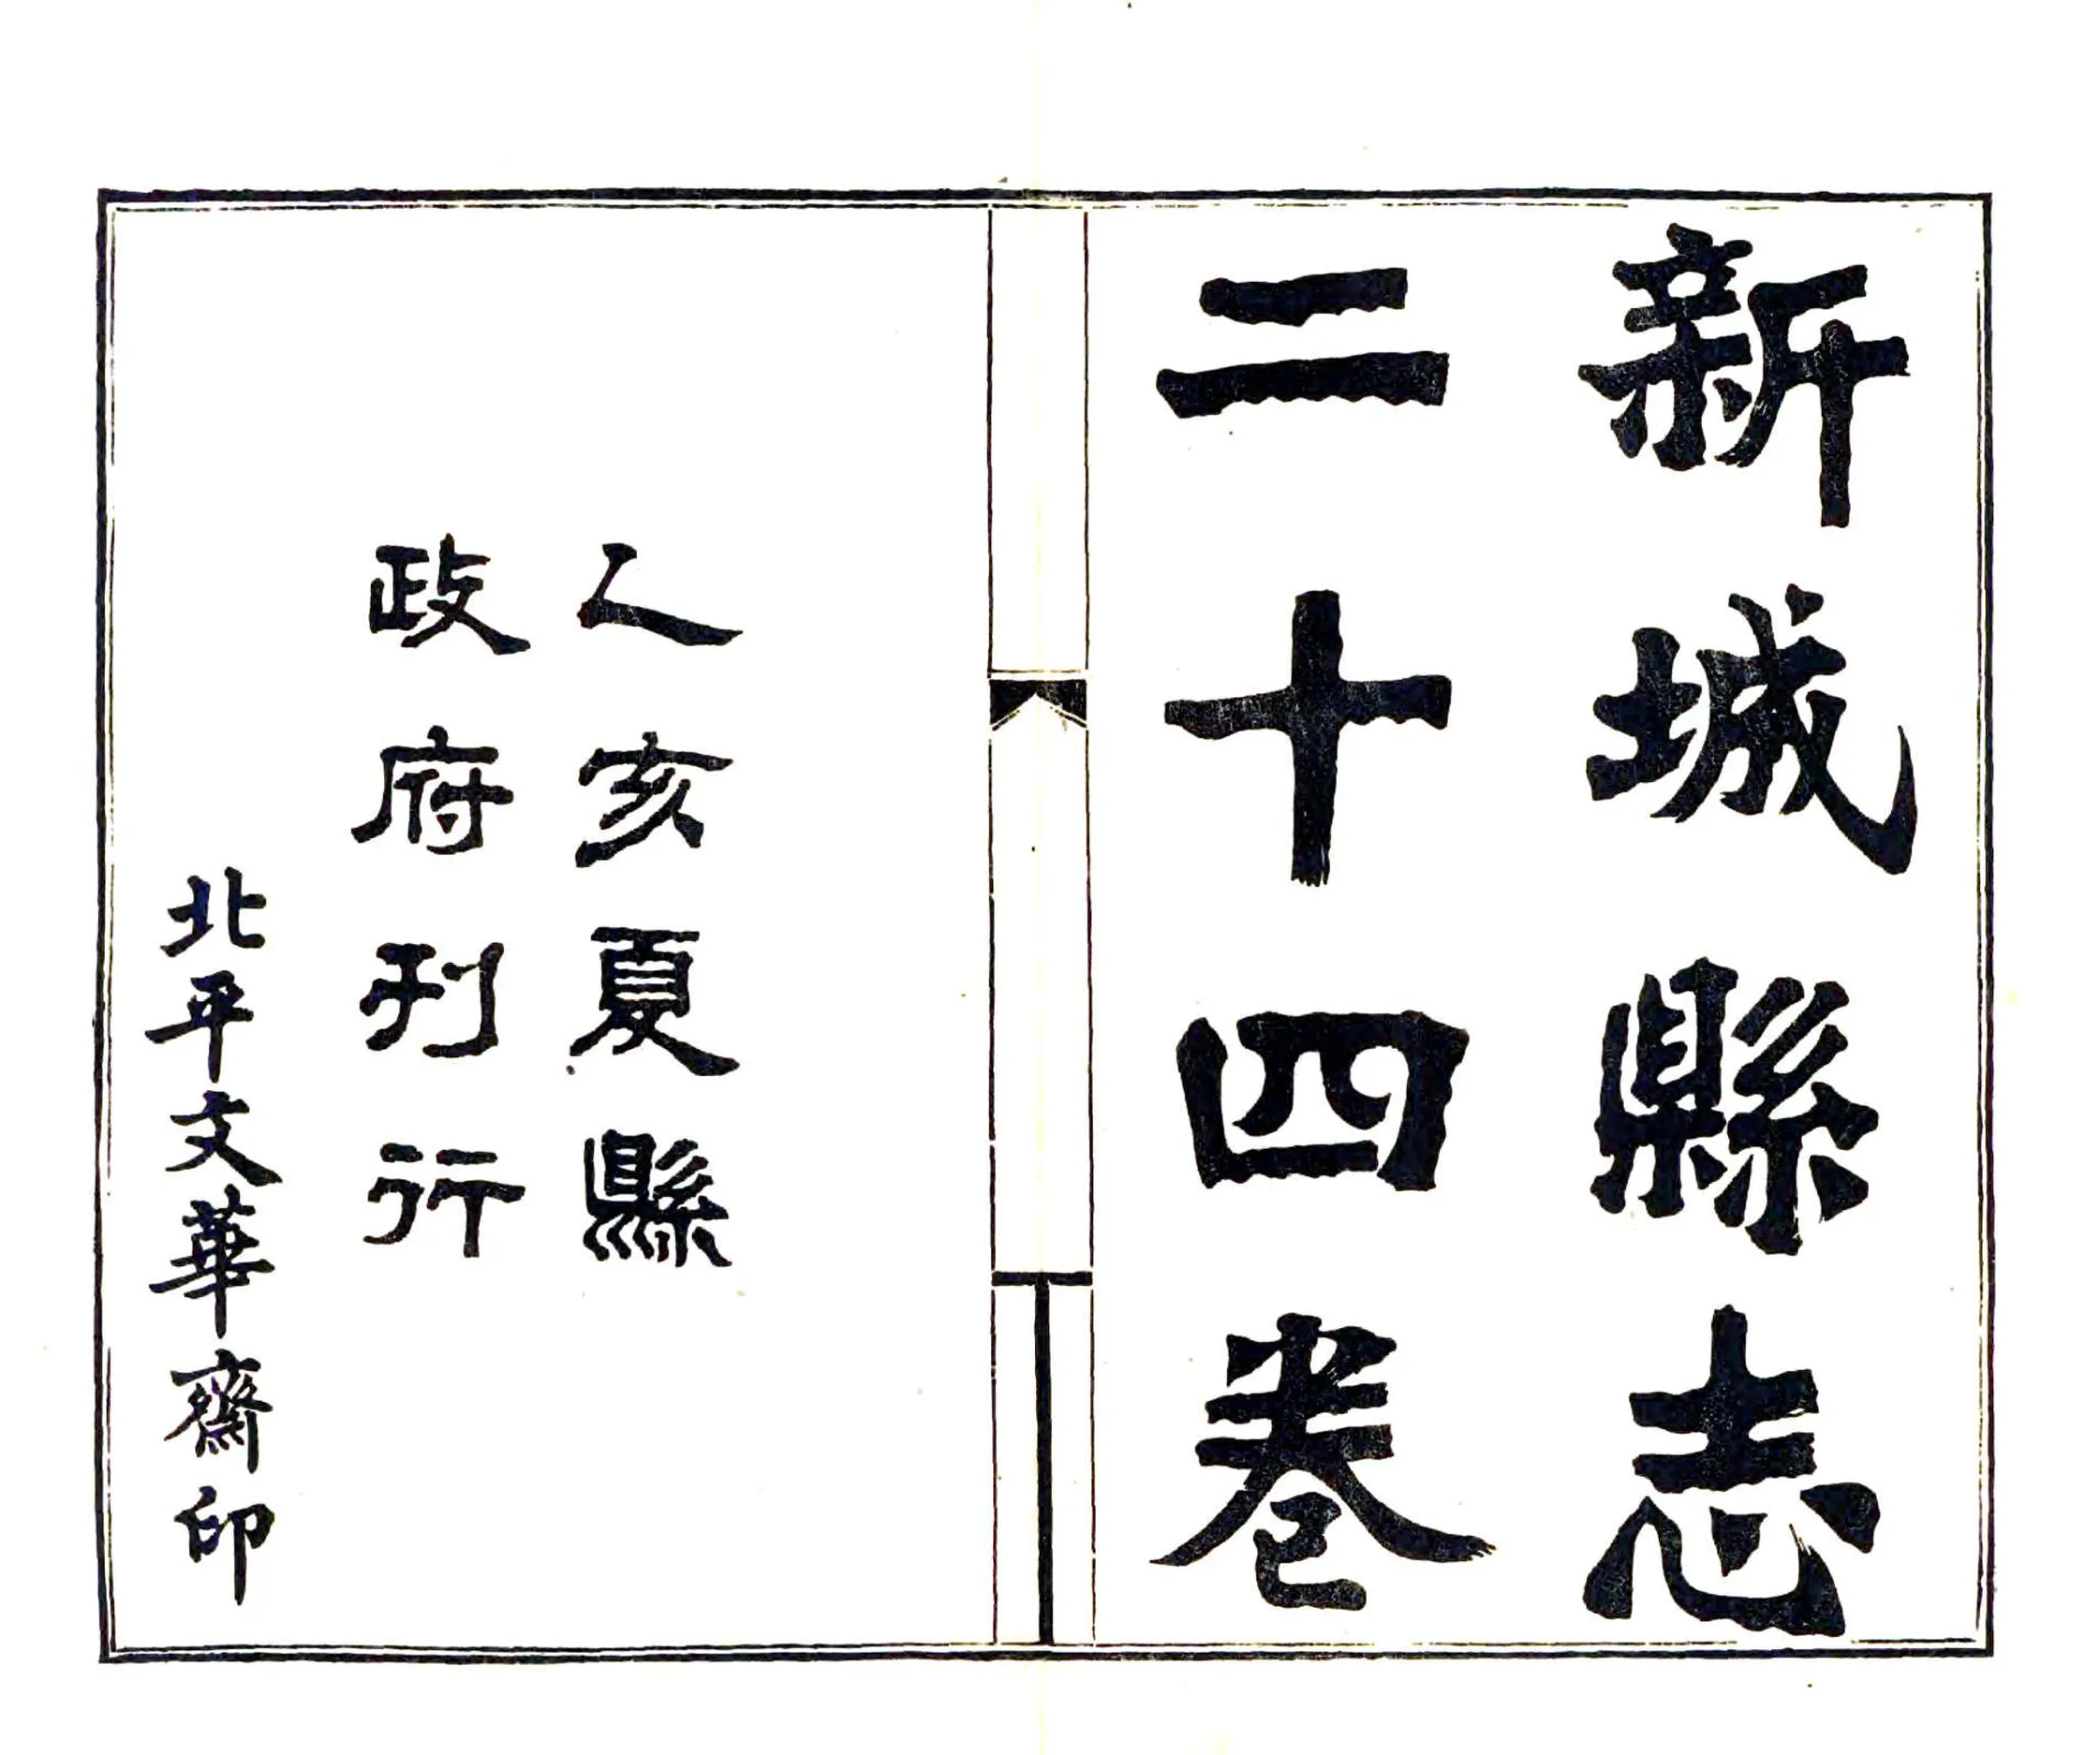 新城縣志
二十四卷
乙亥夏縣
政府刊行
北平文華齋印